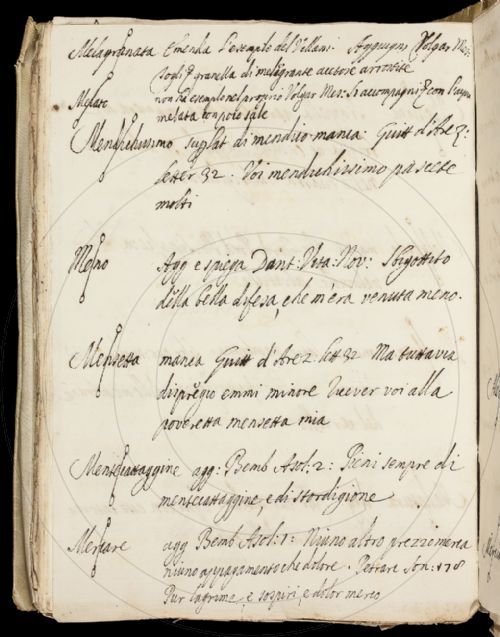 Melagranata Emenda l'esemplo del Villani. Aggiugni Volgar Mes:
Togli granella di melegrane acetose arrostite
Melato non ha esemplo nel proprio Volgar Mes: Si accompagni con
melata con poco sale
Mendichissimo superlat di mendico manca. Guitt d'Arez:
letter 32. Voi mendichissimo pascete
molti
Meno Agg e spiega Dant: Vita: Nov: Sbigottito
della bella difesa, che m'era venuta meno.
Mensetta manca Guitt d'Arez lett 32 Ma tuttavia
dispregio emmi minore ricever voi alla
poveretta mensetta mia
Mentecattaggine agg: Bemb Asol: 2: Pieni sempre di
mentecattaggine, e di stordigione
Mercare agg Bemb Asol: 1: Niuno altro prezzo merca
niuno appagamento che dolore. Petrarc Son: 178
Pur lagrime, e sospiri, e dolor merco